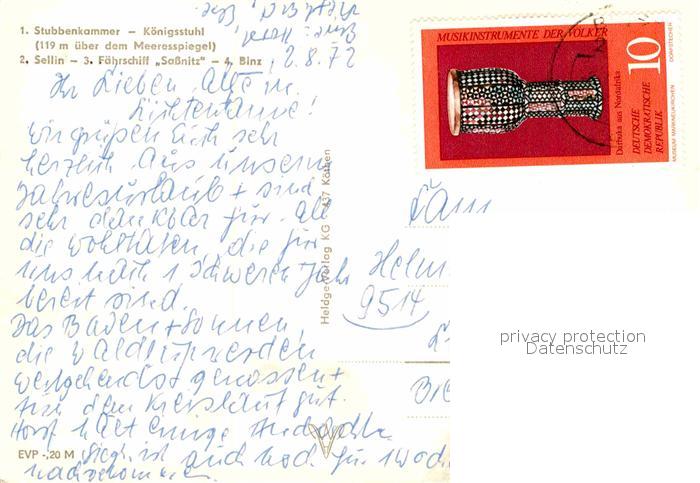 1. Stubbenkammer – Königsstuhl
(119 m über dem Meeresspiegel)
2. Sellin – 3. Fährschiff „Saßnitz" – 4. Binz
2.8.72
Ihr Lieben, Alle in
Lichtentanne!
Wir grüßen Euch sehr
herzlich aus unserem
Jahresurlaub + sind
sehr dankbar für all
die Wohltaten, die für
uns nach 1 schweren Jahr
bereit sind.
Das Baden + Sonnen,
die Wald
weitgehendst genossen +
für den Kreislauf gut.
Horst hält einige
auch noch für 1 Woche
nachgekommen.
EVP -,20 M
Heldge-Verlag KG 437 Köthen
MUSIKINSTRUMENTE DER VÖLKER
10
Darbuka aus Nordafrika
DEUTSCHE
DEMOKRATISCHE
REPUBLIK
MUSEUM MARKNEUKIRCHEN
DORFSTECHER
Fam
Helm
9514
privacy protection
Datenschutz